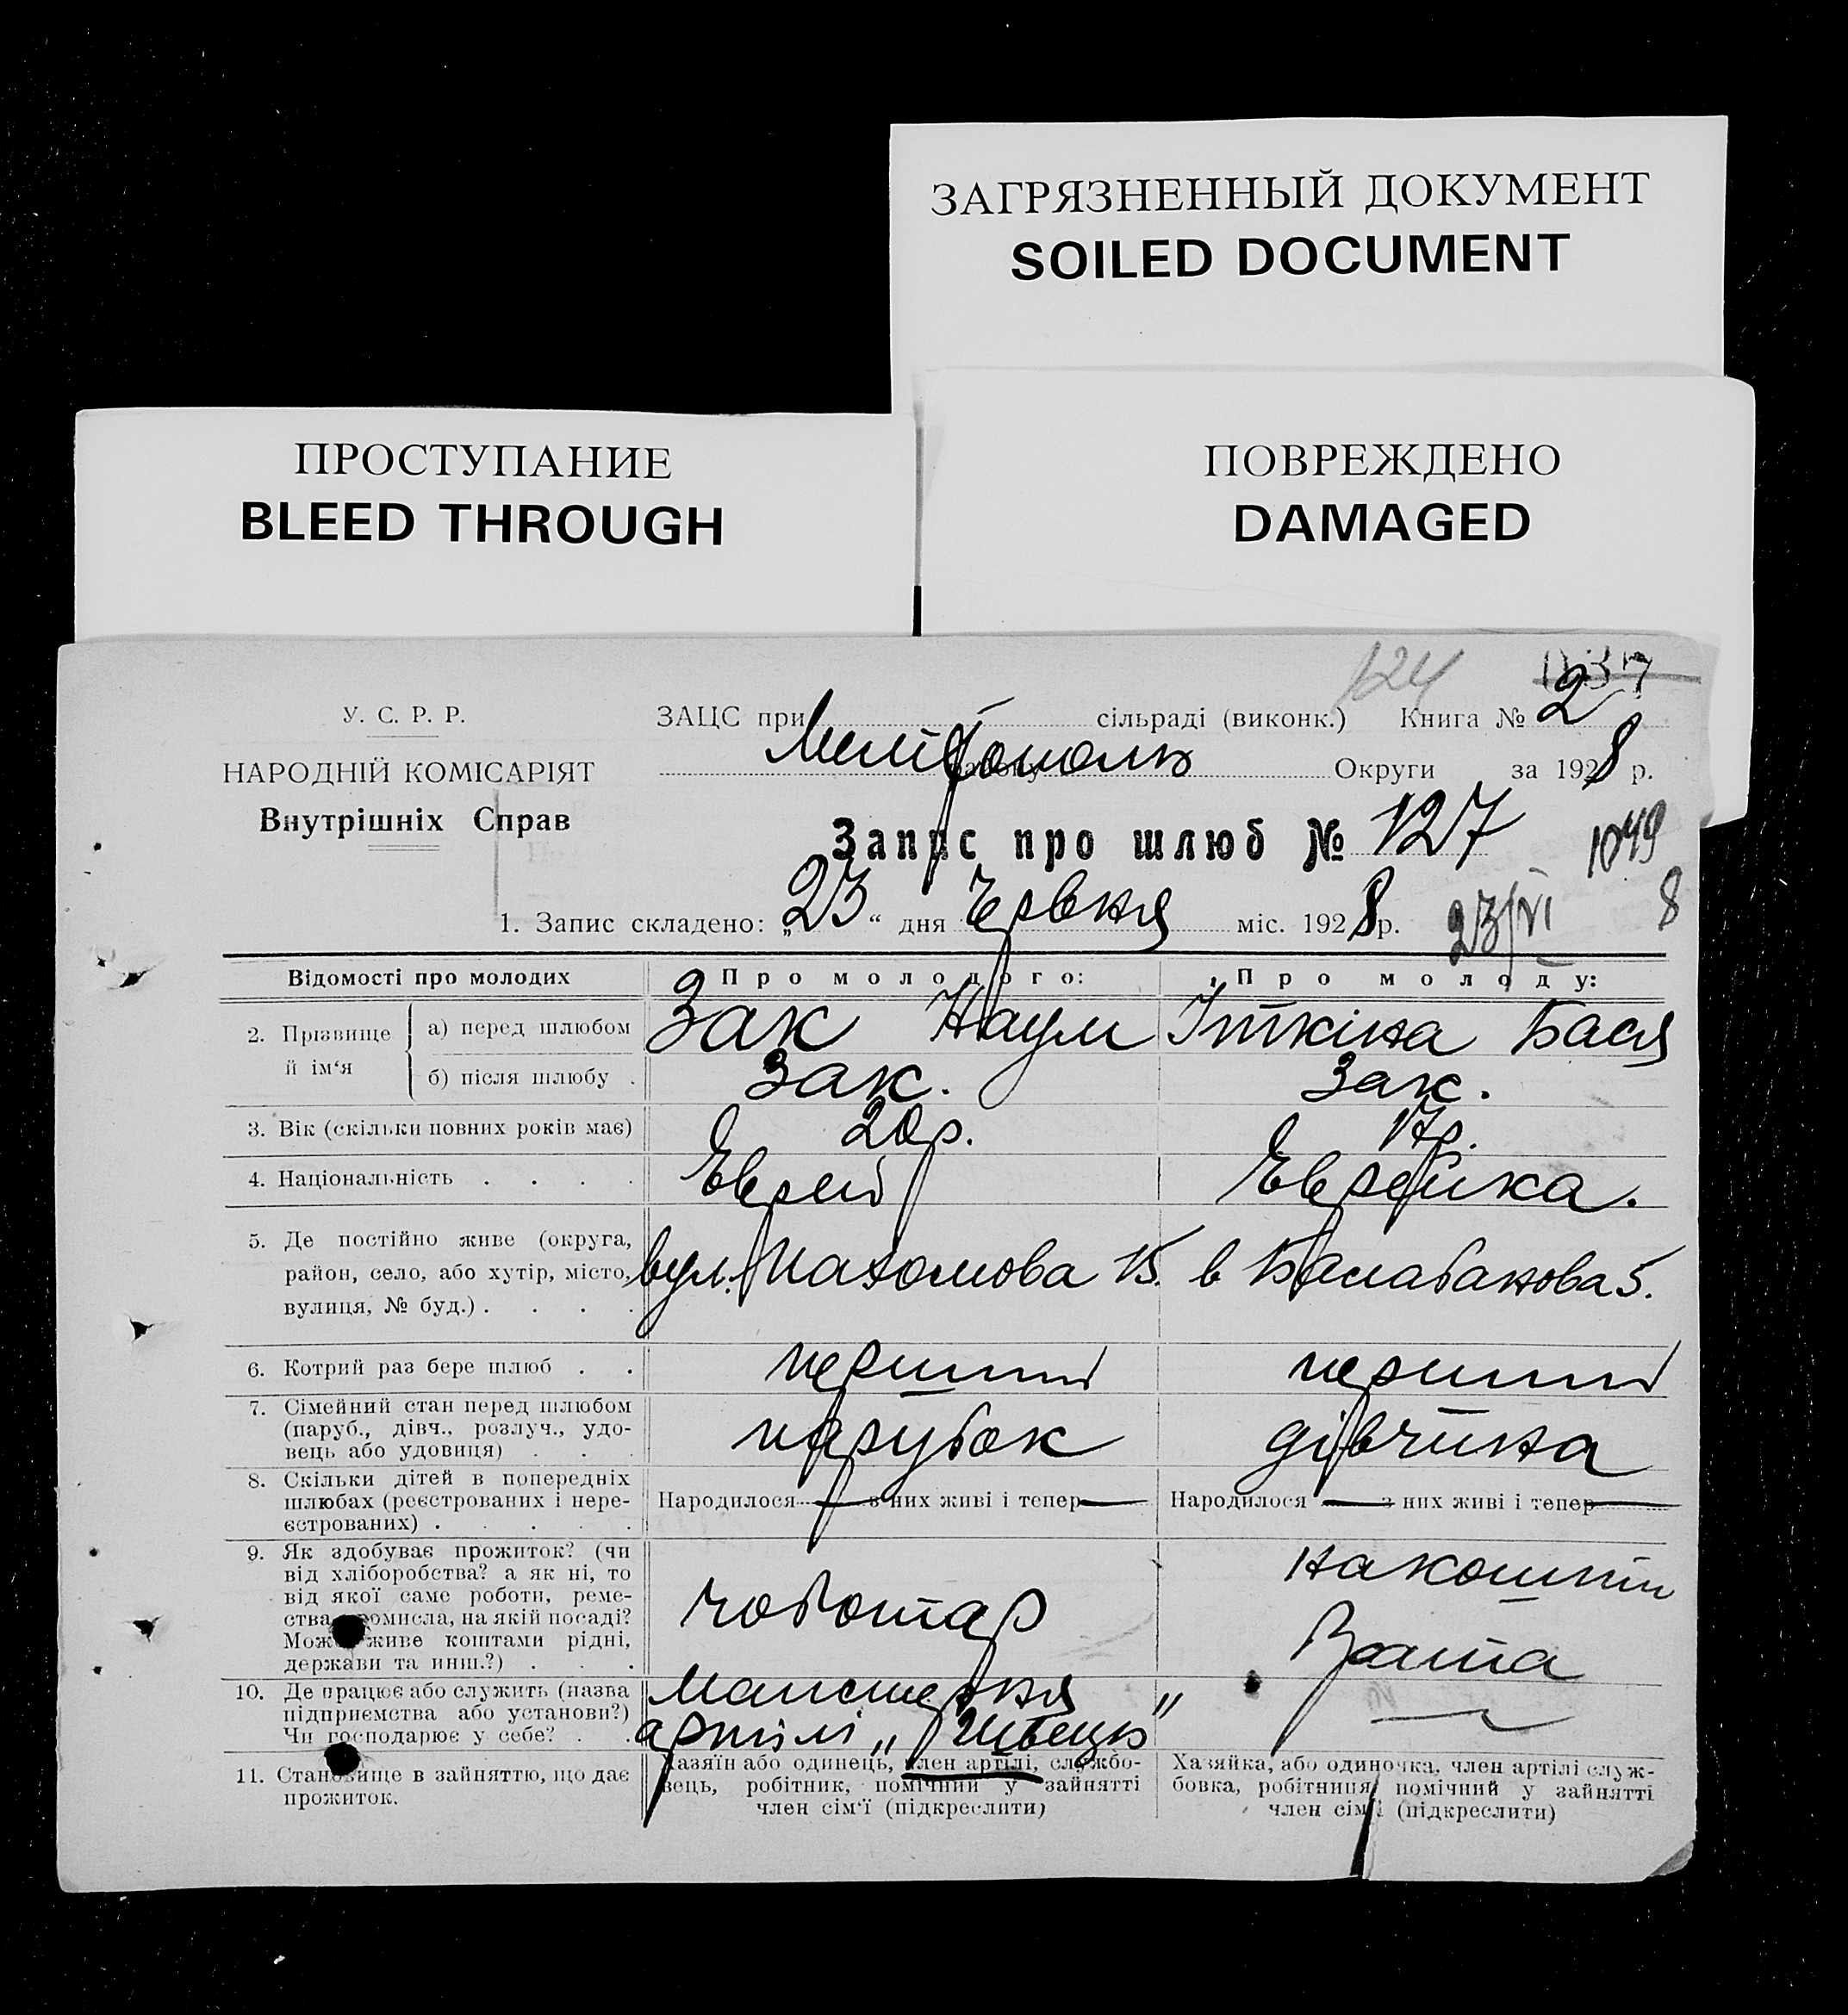 ЗАГРЯЗНЕННЫЙ ДОКУМЕНТ
SOILED DOCUMENT
ПРОСТУПАНИЕ
BLEED THROUGH
ПОВРЕЖДЕНО
DAMAGED
124
У. С. Р. Р.
НАРОДНІЙ КОМІСАРІЯТ
Внутрішніх Справ
ЗАЦС при сільраді (виконк.) Книга № 2
Мелітополь Округи за 1928 р.
Запис про шлюб № 127
1049
1. Запис складено: „23“ дня Червня міс. 1928 р.
23/VI 8
Відомості про молодих Про молодого: Про молоду:
2. Прізвище й ім‘я
а) перед шлюбом Зак Наум Іткіна Бася
б) після шлюбу . Зак. Зак.
3. Вік (скільки повних років має) 20р. 17р.
4. Національність . . . . Еврей Еврейка.
5. Де постійно живе (округа,
район, село, або хутір, місто,
вулиця, № буд.) . . . .
вул. Пахомова 15. в Балабанова 5.
6. Котрий раз бере шлюб . . перший перший
7. Сімейний стан перед шлюбом
(паруб., дівч., розлуч., удо-
вець або удовиця) . . .
парубок дівчина
8. Скільки дітей в попередніх
шлюбах (реєстрованих і нере-
єстрованих) . . . . .
Народилося — з них живі і тепер — Народилося — з них живі і тепер —
9. Як здобуває прожиток? (чи
від хліборобства? а як ні, то
від якої саме роботи, реме-
ства, промисла, на якій посаді?
Може живе коштами рідні,
держави та инш.?) . . .
чоботар
на кошти
Брата
10. Де працює або служить (назва
підприємства або установи?)
Чи господарює у себе? . .
Майстерня
артілі „Швець”
11. Становище в зайняттю, що дає
прожиток.
Хазяїн або одинець, член артілі, службо-
вець, робітник, помічний у зайнятті
член сім‘ї (підкреслити)
Хазяйка, або одиночка, член артілі служ-
бовка, робітниця, помічний у зайнятті
член сім‘ї (підкреслити)